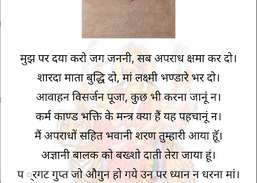 मुझ पर दया करो जग जननी, सब अपराध क्षमा कर दो।
शारदा माता बुद्धि दो, मां लक्ष्मी भण्डारे भर दो।
आवाहन विसर्जन पूजा, कुछ भी करना जानूं न।
कर्म काण्ड भक्ति के मन्त्र क्या हैं यह पहचानूं न।
मैं अपराधों सहित भवानी शरण तुम्हारी आया हूँ।
अज्ञानी बालक को बख्शो दाती तेरा जाया हूं।
प ्रगट गुप्त जो औगुन हो गये उन पर ध्यान न धरना मां।